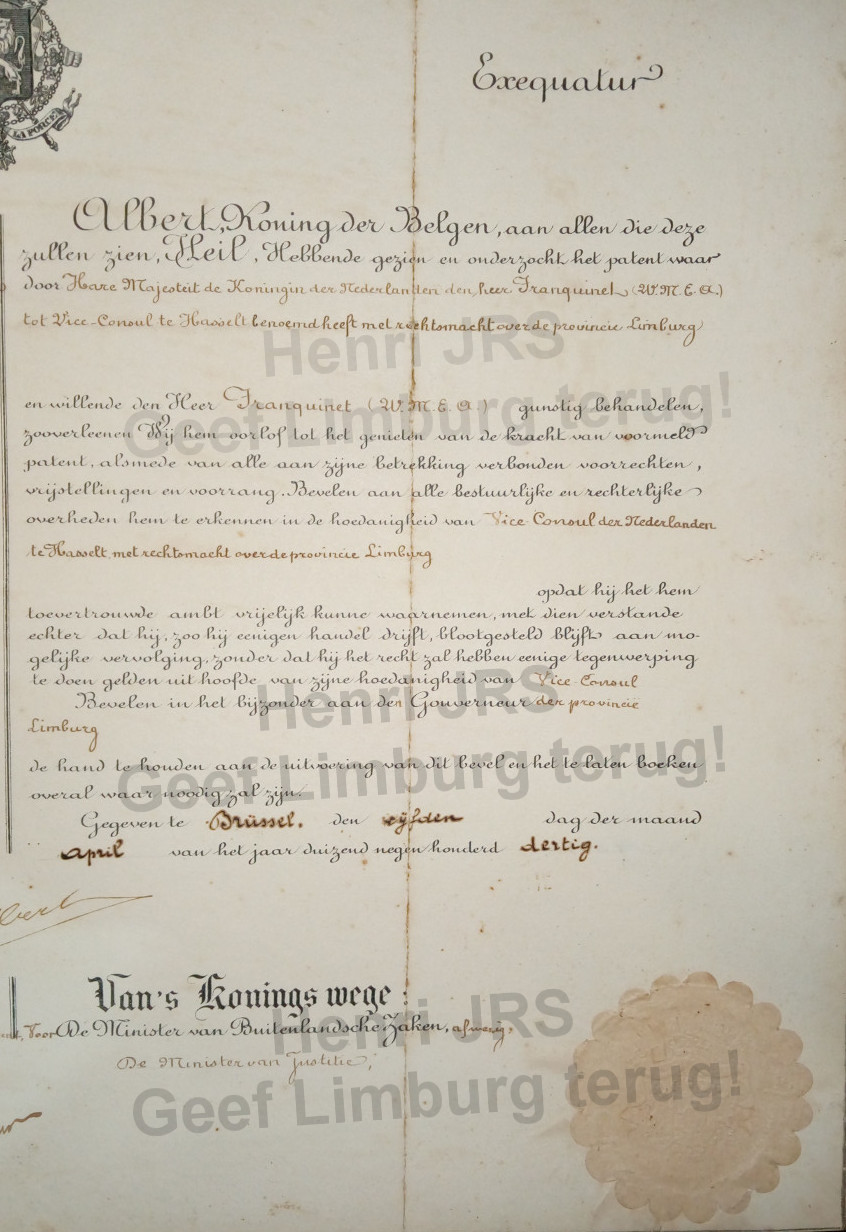 LA FORCE
Exequatur
Albert, Koning der Belgen, aan allen die deze
zullen zien, Heil, Hebbende gezien en onderzocht het patent waar
door Hare Majesteit de Koningin der Nederlanden den heer Franquinet (W. M. E. A.)
tot Vice-Consul te Hasselt benoemd heeft met rechtsmacht over de provincie Limburg
Henri JRS
en willende den Heer Franquinet (W. M. E. A.) gunstig behandelen,
Geef Limburg terug!
zooverleenen Wij hem oorlof tot het genieten van de kracht van voormeld
patent, alsmede van alle aan zijne betrekking verbonden voorrechten,
vrijstellingen en voorrang. Bevelen aan alle bestuurlijke en rechterlijke
overheden hem te erkennen in de hoedanigheid van Vice Consul der Nederlanden
te Hasselt, met rechtsmacht over de provincie Limburg
opdat hij het hem
toevertrouwde ambt vrijelijk kunne waarnemen, met dien verstande
echter dat hij, zoo hij eenigen handel drijft, blootgesteld blijft aan mo-
gelijke vervolging, zonder dat hij het recht zal hebben eenige tegenwerping
te doen gelden uit hoofde van zijne hoedanigheid van Vice-Consul
Henri JRS
Bevelen in het bijzonder aan den Gouverneur der provincie
Limburg
de hand te houden aan de uitvoering van dit bevel en het te laten boeken
Geef Limburg terug!
overal waar noodig zal zijn.
Gegeven te Brüssel, den vijfden dag der maand
april van het jaar duizend negen honderd dertig.
Van's Konings wege:
Henri JRS
Voor De Minister van Buitenlandsche Zaken, afwezig,
De Minister van Justitie,
Geef Limburg terug!